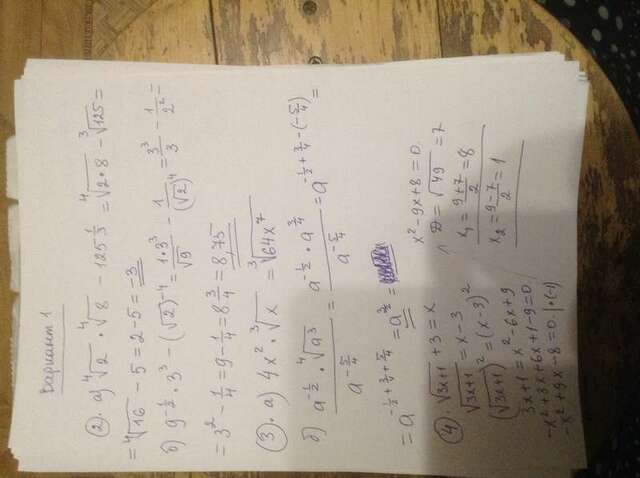 Вариант 1
②. а) ⁴√2 · ⁴√8 − 125^(1/3) = ⁴√(2·8) − ³√125 =
= ⁴√16 − 5 = 2 − 5 = −3
б) 9^(−1/2) · 3³ − (√2)^(−4) = (1·3³)/√9 − 1/(√2)⁴ = 3³/3 − 1/2² =
= 3² − 1/4 = 9 − 1/4 = 8 3/4 = 8,75
③. а) 4x² · ³√x = ³√(64x⁷)
б) (a^(−1/2) · ⁴√(a³))/(a^(−5/4)) = (a^(−1/2) · a^(3/4))/(a^(−5/4)) = a^(−1/2 + 3/4 − (−5/4)) =
= a^(−1/2 + 3/4 + 5/4) = a^(3/2) =
④. √(3x+1) + 3 = x
√(3x+1) = x − 3
(√(3x+1))² = (x−3)²
3x+1 = x² − 6x + 9
−x² + 3x + 6x + 1 − 9 = 0
−x² + 9x − 8 = 0. | ·(−1)
x² − 9x + 8 = 0.
Д = √49 = 7
x₁ = (9+7)/2 = 8
x₂ = (9−7)/2 = 1